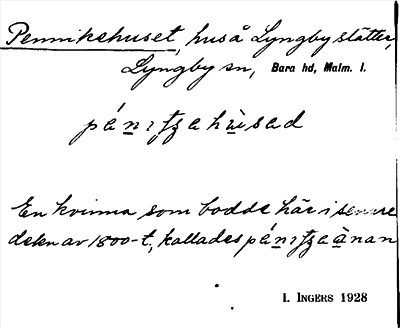 Pennikehuset, hus å Lyngby slätter,
Lyngby sn, Bara hd, Malm. l.
pénɪʈʒahùsad
En kvinna som bodde här i senare
delen av 1800-t, kallades pénɪʈʒaànan
I. INGERS 1928